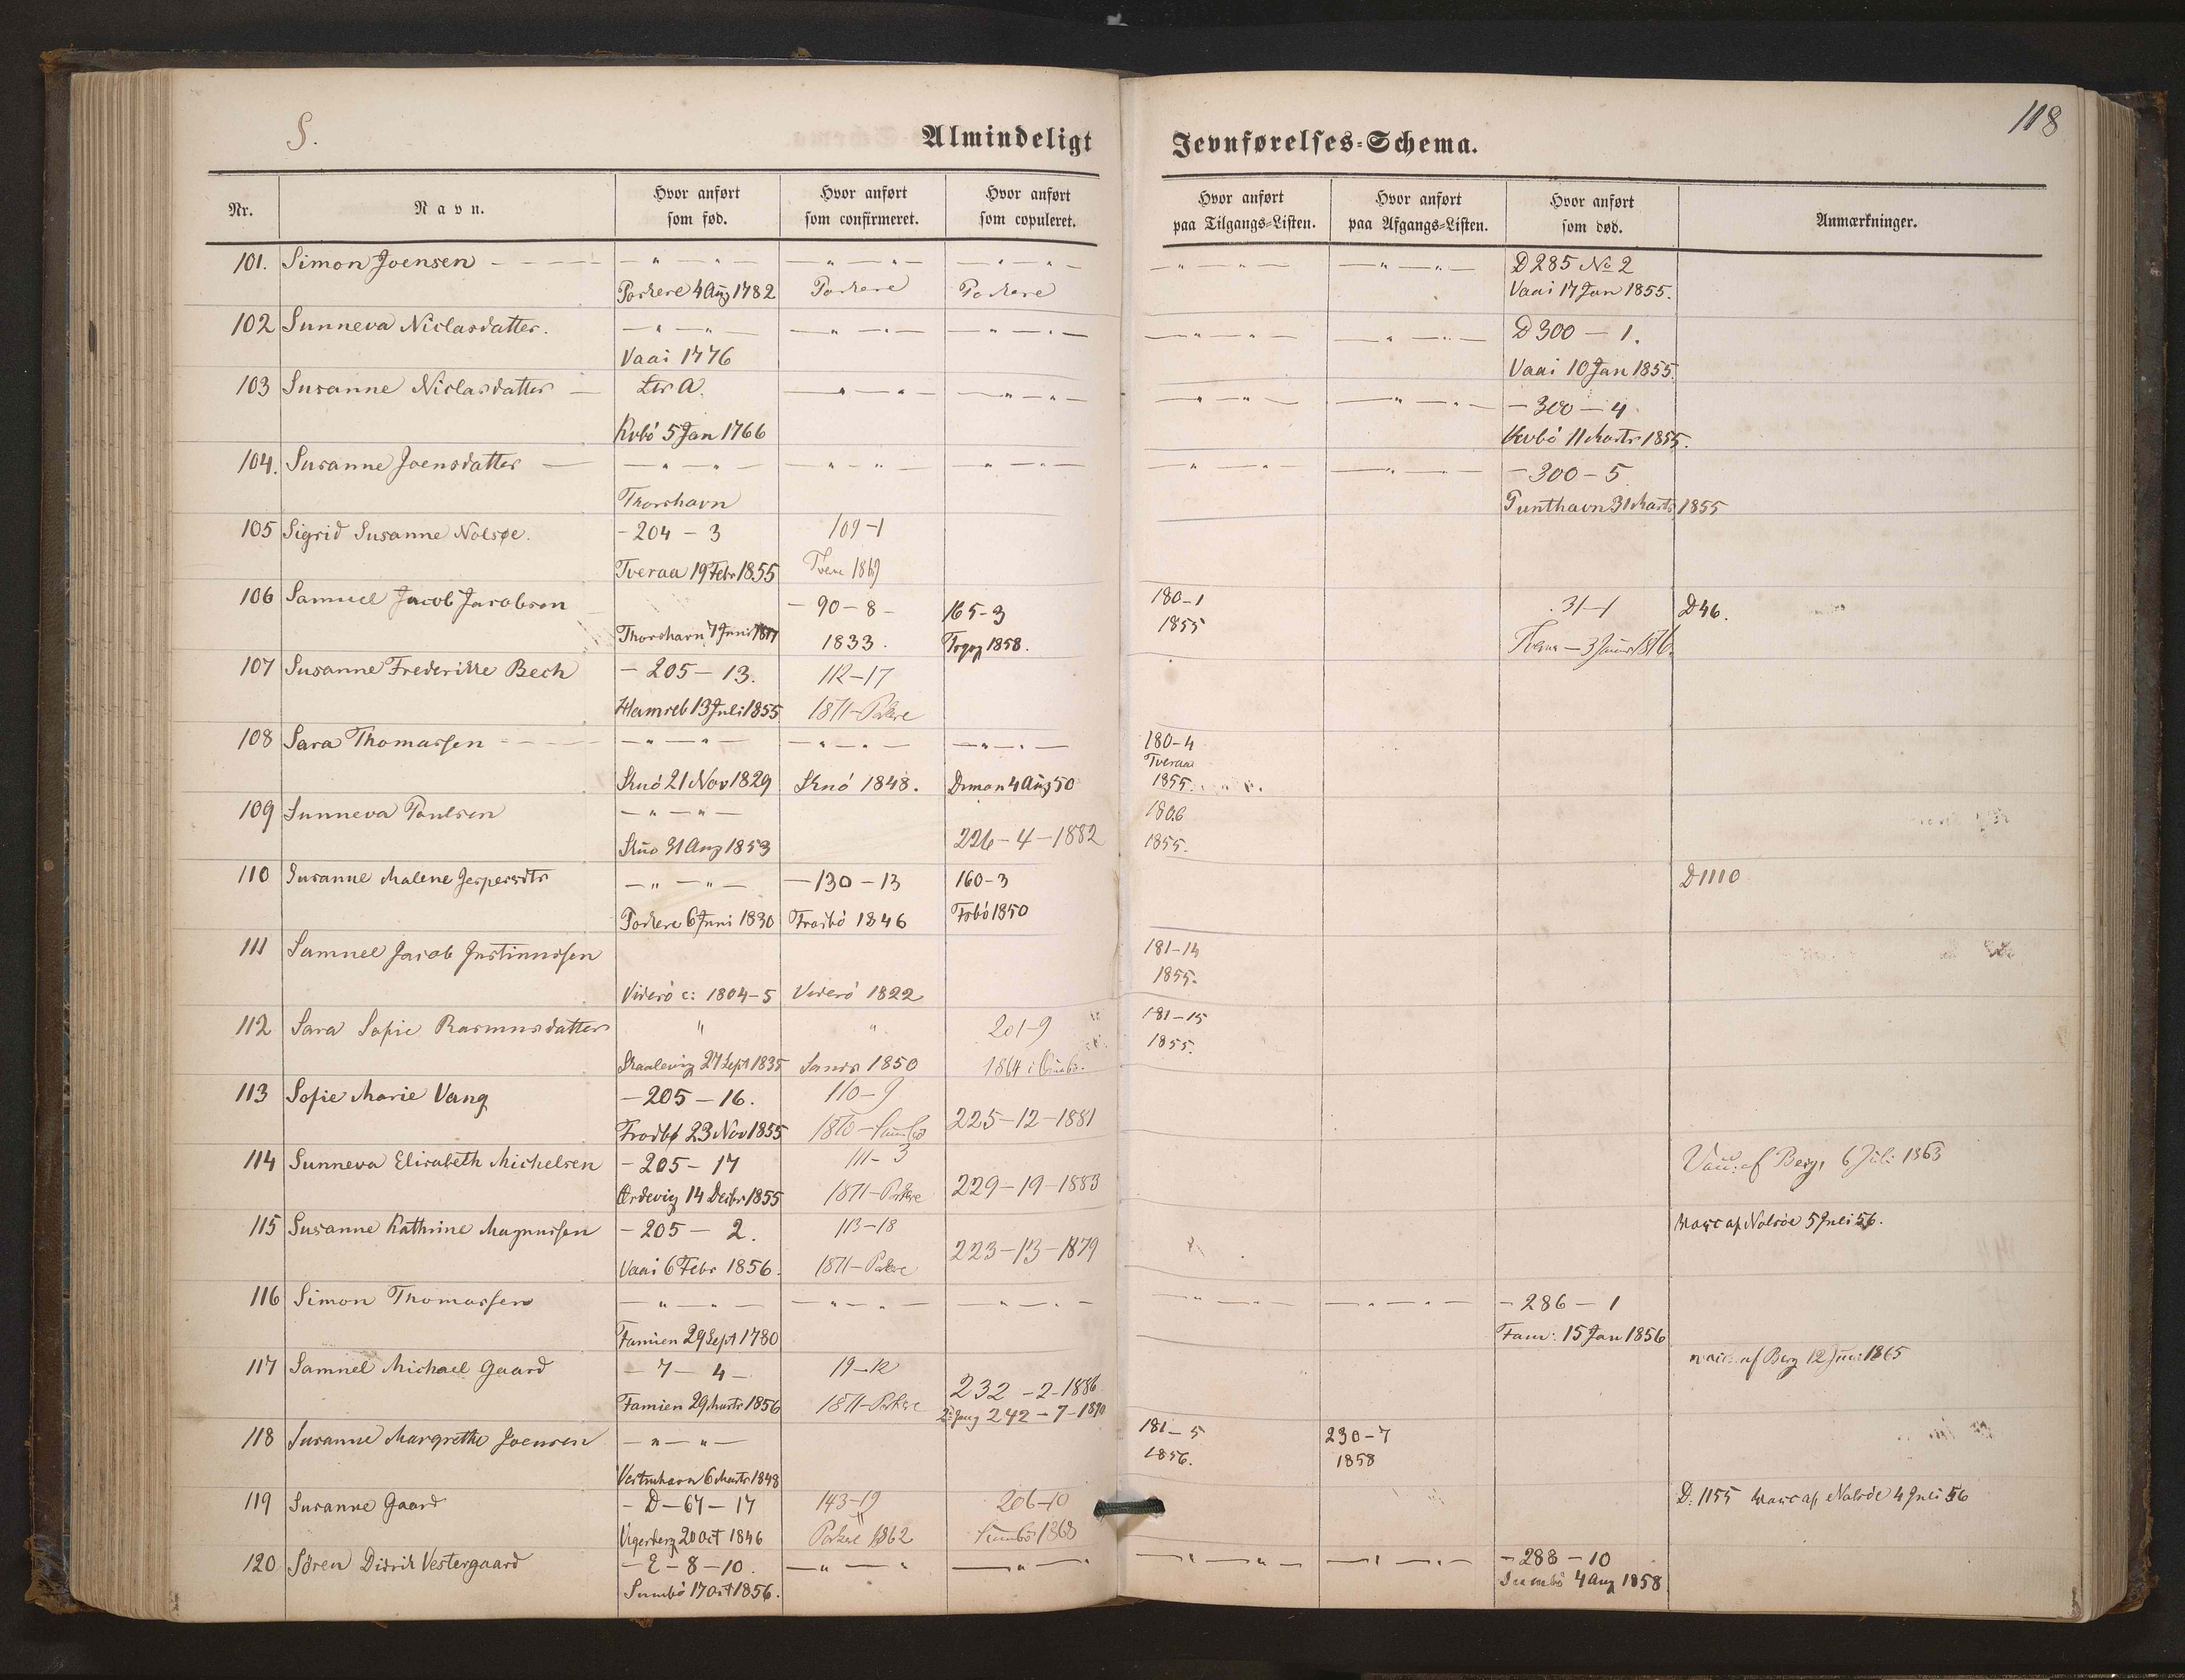 S.
118
Almindeligt Jevnførelses-Schema.
Nr. Navn. Hvor anført som fød. Hvor anført som confirmeret. Hvor anført som copuleret. Hvor anført paa Tilgangs-Listen. Hvor anført paa Afgangs-Listen. Hvor anført som død. Anmærkninger.
101. Simon Joensen - - - - — " — " — — " — " — — " — " — — " — " — — " — " — D 285 No 2
Porkere 4 Aug 1782 Porkere Porkere Vaai 17 Jan 1855.
102 Sunneva Niclasdatter. — " — " — — " — " — — " — " — — " — " — — " — " — D 300 — 1.
Vaai 1776 Vaai 10 Jan 1855.
103 Susanne Niclasdatter — Ltr A. — " — " — — " — " — — " — " — — " — " — — 300 — 4
Kvbö 5 Jan 1766 Kvbö 11 Marts 1855.
104. Susanne Joensdatter — — " — " — — " — " " — " — — " — " — — " — " — — 300 — 5
Thorshavn 31 Marts 1855
105 Sigrid Susanne Nolsøe. — 204 — 3 109-1
Tveraa 19 Febr 1855 Tvera 1869
106 Samuel Jacob Jacobsen — 90 — 8 — 165-3 180-1 31-1 D 46.
Thorshavn 7 Juni 1833. 1858. 1855
107 Susanne Frederikke Bech — 205 — 13. 112-17
Hamreb 13 Juli 1855 1871-Porkere
108 Sara Thomassen - - - — " — " — — " — " — — " — " — 180-4
Tveraa
Skuö 21 Nov 1829 Skuö 1848. 4 Aug 50 1855.
109 Sunneva Poulsen — " — " — 180.6
Skuo 31 Aug 1853 226-4-1882 1855.
110 Susanne Malene Jespersdtr — " — " — — 130 — 13 160-3 D 1110
Porkere 6 Juni 1830 Frodbö 1846 Frbö 1850
111 Samuel Jacob Justinussen 181-14
Viderö c: 1804-5 Viderö 1822 1855.
112 Sara Sofie Rasmusdatter " " 201-9 181-15
Skaalevig 27 Sept 1835 Sands 1850 1864 i 1855.
113 Sofie Marie Vang — 205 — 16. 110-9
Frodbø 23 Nov 1855 1870-Sumbo 225-12-1881
114 Sunneva Elisabeth Michelsen — 205 — 17 111-3 Vacc: af Berg, 6 Juli 1863
Ørdevig 14 Decbr 1855 1871-Porkere 229-19-1883
115 Susanne Kathrine Magnussen — 205 — 2. 113-18 Vacc af Nolsöe 5 Juli 56.
Vaai 6 Febr 1856. 1871-Porkere 223-13-1879
116 Simon Thomassen — " — " — — " — " — — " — " — — " — " — — " — " — — 286 — 1
Famien 29 Sept 1780 Fam: 15 Jan 1856
117 Samuel Michael Gaard — 7 — 4 — 19-12 vacc: af Berg 12 Juni 1865
Famien 29 Marts 1856 1871-Porkere 232-2-1886
2. Gang 242-7-1890
118 Susanne Margrethe Joensen — " — " — 181-5 230-7
Vestmhavn 6 Marts 1848 1856. 1858
119 Susanne Gaard — D — 67 — 17 143-19 206-10 D. 1155 Vacc af Nolsöe 4 Juli 56
20 Oct 1846 Porkere 1862 Sumbö 1868
120 Sören Didrik Vestergaard — E — 8 — 10. — " — " — " — — " — " — — " — " — — 288 — 10
Sumbö 17 Oct 1856. Sumbö 4 Aug 1858